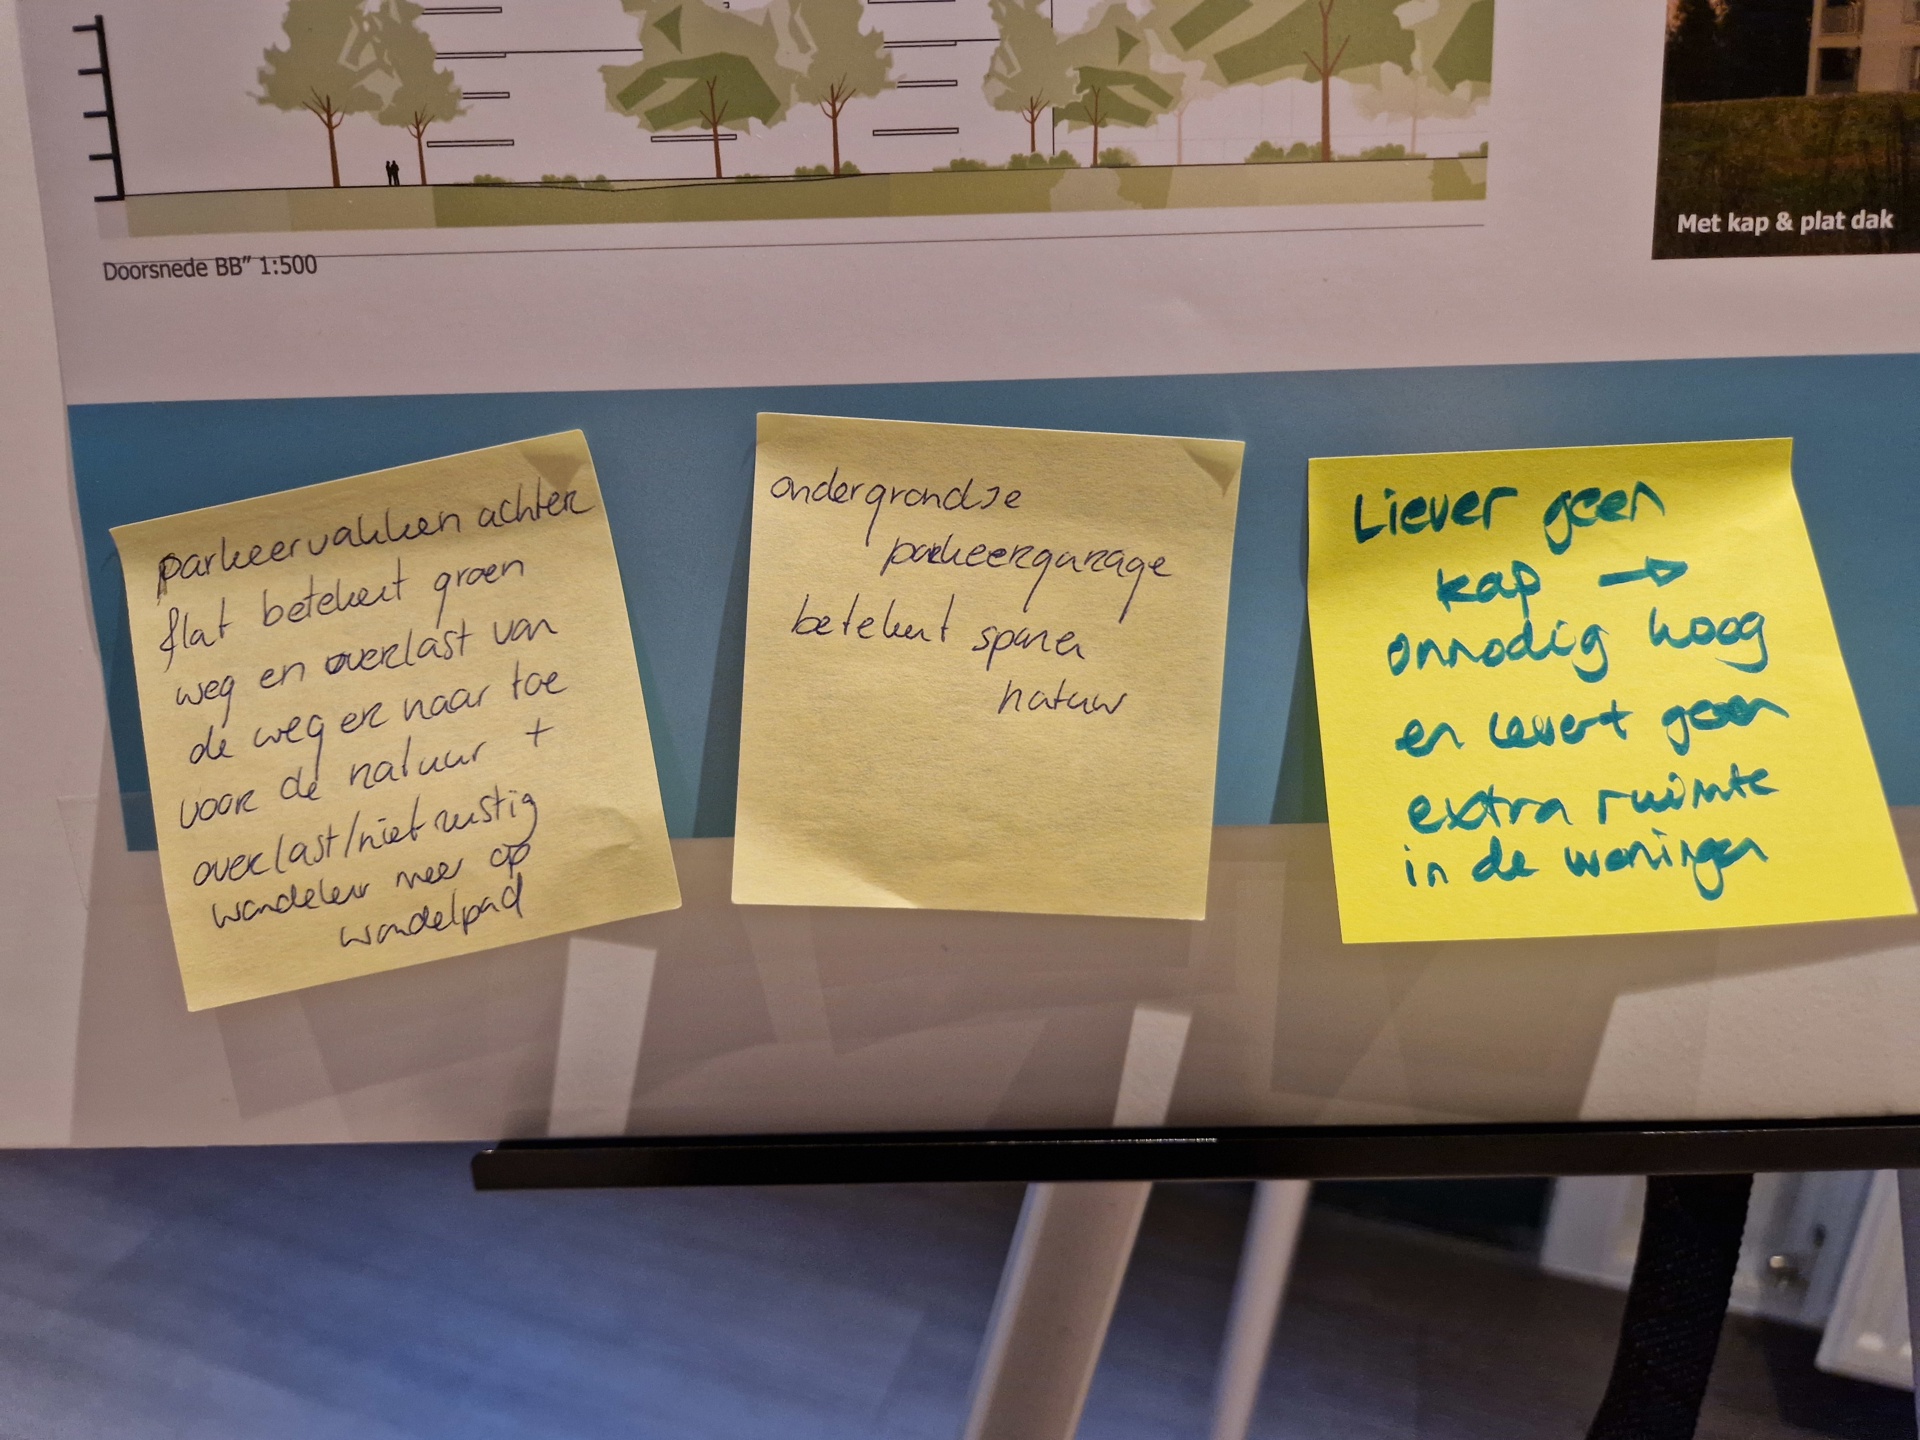 Doorsnede BB" 1:500
Met kap & plat dak
parkeervakken achter
flat betekent groen
weg en overlast van
de weg er naar toe
voor de natuur +
overlast/niet rustig
wandelen meer op
wandelpad
ondergrondse
parkeergarage
betekent sparen
natuur
Liever geen
kap →
onnodig hoog
en levert geen
extra ruimte
in de woningen